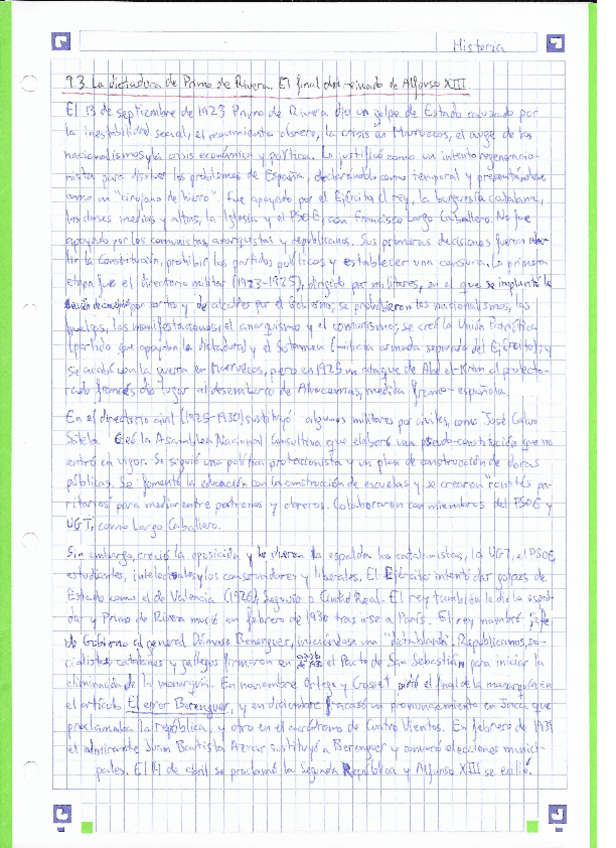 Historia
9.3. La dictadura de Primo de Rivera. El final del reinado de Alfonso XIII.
El 13 de septiembre de 1923 Primo de Rivera dio un golpe de Estado causado por
la inestabilidad social, el movimiento obrero, la crisis en Marruecos, el auge de los
nacionalismos y la crisis económica y política. Lo justificó como un intento regeneracio-
nista para resolver los problemas de España, declarándolo como temporal y presentándose
como un "cirujano de hierro". Fue apoyado por el Ejército, el rey, la burguesía catalana,
las clases medias y altas, la Iglesia y el PSOE, con Francisco Largo Caballero. No fue
apoyado por los comunistas, anarquistas y republicanos. Sus primeras decisiones fueron abo-
lir la Constitución, prohibir los partidos políticos y establecer una censura. La primera
etapa fue el directorio militar (1923-1925), dirigido por militares, en el que se implantó la
por y de alcaldes por el Gobierno; se prohibieron los nacionalismos, las
huelgas, las manifestaciones, el anarquismo y el comunismo; se creó la Unión Patriótica
(partido que apoyaba la dictadura) y el Somatén (milicia armada separada del Ejército); y
se acabó con la guerra en Marruecos, pero en 1925 un ataque de Abd el-Krim al protecto-
rado francés dio lugar al desembarco de Alhucemas, medida franco-española.
En el directorio civil (1925-1930) sustituyó algunos militares por civiles, como José Calvo
Sotelo. Creó la Asamblea Nacional Consultiva que elaboró una pseudo-constitución que no
entró en vigor. Se siguió una política proteccionista y un plan de construcción de obras
públicas. Se fomentó la educación con la construcción de escuelas y se crearon "comités pa-
ritarios" para mediar entre patronos y obreros. Colaboraron con miembros del PSOE y
UGT, como Largo Caballero.
Sin embargo, creció la oposición y le dieron la espalda los catalanistas, la UGT, el PSOE,
estudiantes, intelectuales y los conservadores y liberales. El Ejército intentó dar golpes de
Estado como el de Valencia (1926), Segovia o Ciudad Real. El rey también le dio la espal-
da y Primo de Rivera murió en febrero de 1930 tras irse a París. El rey nombró jefe
de Gobierno al general Dámaso Berenguer, iniciándose una "dictablanda". Republicanos, so-
cialistas, catalanes y gallegos firmaron en agosto de 1930 el Pacto de San Sebastián para iniciar la
eliminación de la monarquía. En noviembre Ortega y Gasset pidió el final de la monarquía en
el artículo El error Berenguer, y en diciembre fracasó un pronunciamiento en Jaca que
proclamaba la república, y otro en el aeródromo de Cuatro Vientos. En febrero de 1931
el almirante Juan Bautista Aznar sustituyó a Berenguer y anunció elecciones munici-
pales. El 14 de abril se proclamó la Segunda República y Alfonso XIII se exilió.